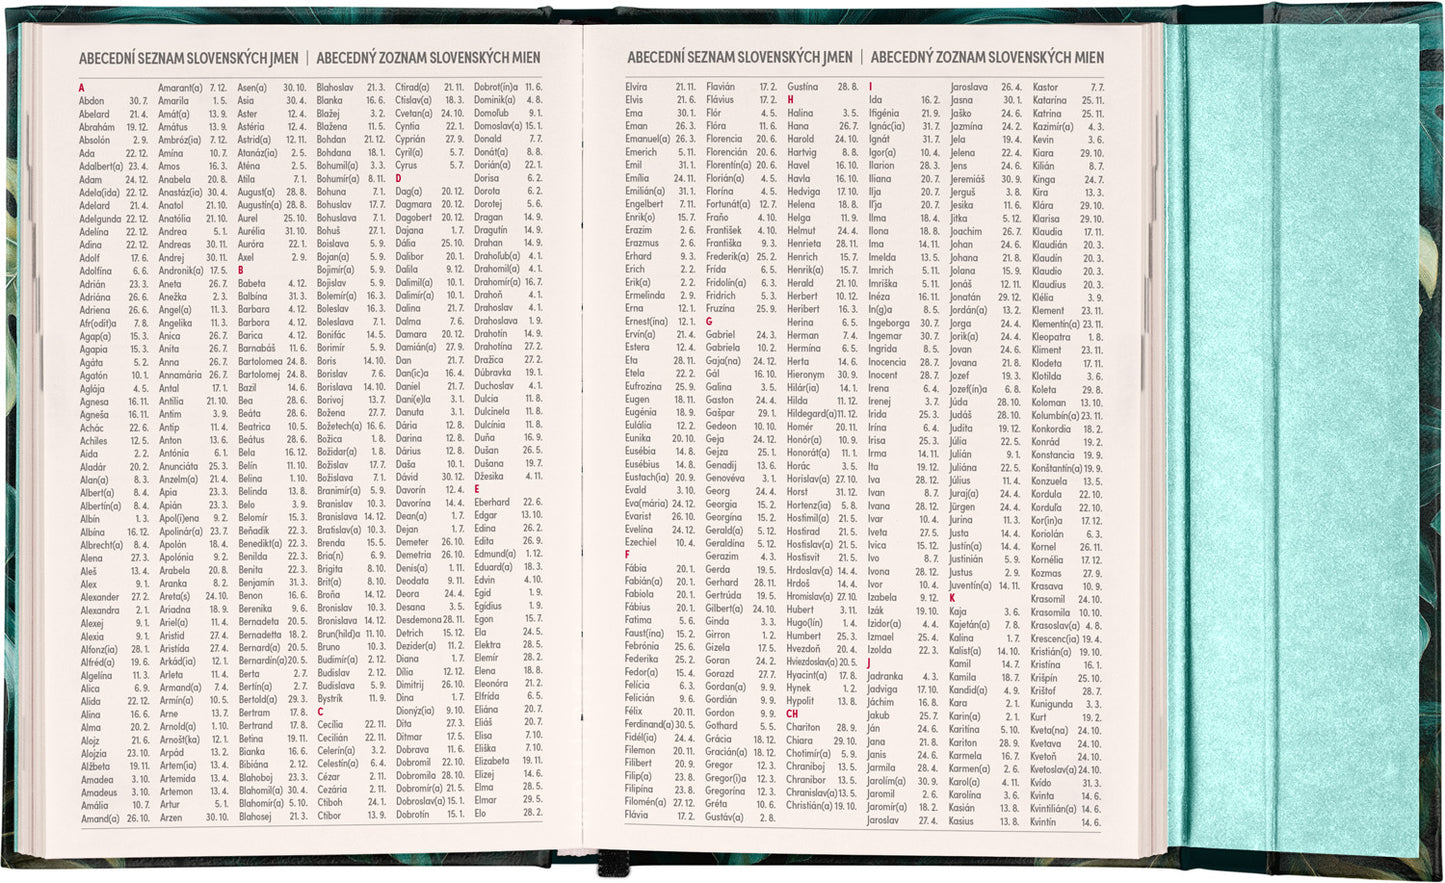 ABECEDNÍ SEZNAM SLOVENSKÝCH JMEN | ABECEDNÝ ZOZNAM SLOVENSKÝCH MIEN
A
Abdon 30. 7.
Abelard 21. 4.
Abrahám 19. 12.
Absolón 2. 9.
Ada 22. 12.
Adalbert(a) 23. 4.
Adam 24. 12.
Adela(ida) 22. 12.
Adelard 21. 4.
Adelgunda 22. 12.
Adelína 22. 12.
Adina 22. 12.
Adolf 17. 6.
Adolfína 6. 6.
Adrián 23. 3.
Adriána 26. 6.
Adriena 26. 6.
Afr(odit)a 7. 8.
Agap(a) 15. 3.
Agapia 15. 3.
Agáta 5. 2.
Agatón 10. 1.
Aglája 4. 5.
Agnesa 16. 11.
Agneša 16. 11.
Achác 22. 6.
Achiles 12. 5.
Aida 2. 2.
Aladár 20. 2.
Alan(a) 8. 3.
Albert(a) 8. 4.
Albertín(a) 8. 4.
Albín 1. 3.
Albína 16. 12.
Albrecht(a) 8. 4.
Alena 27. 3.
Aleš 13. 4.
Alex 9. 1.
Alexander 27. 2.
Alexandra 2. 1.
Alexej 9. 1.
Alexia 9. 1.
Alfonz(ia) 28. 1.
Alfréd(a) 19. 6.
Algelína 11. 3.
Alica 6. 9.
Alida 22. 12.
Alina 16. 6.
Alma 20. 2.
Alojz 21. 6.
Alojzia 23. 10.
Alžbeta 19. 11.
Amadea 3. 10.
Amadeus 3. 10.
Amália 10. 7.
Amand(a) 26. 10.
Amarant(a) 7. 12.
Amarila 1. 5.
Amát(a) 13. 9.
Amátus 13. 9.
Ambróz(ia) 7. 12.
Amína 10. 7.
Amos 16. 3.
Anabela 20. 8.
Anastáz(ia) 30. 4.
Anatol 21. 10.
Anatólia 21. 10.
Andrea 5. 1.
Andreas 30. 11.
Andrej 30. 11.
Andronik(a) 17. 5.
Aneta 26. 7.
Anežka 2. 3.
Angel(a) 11. 3.
Angelika 11. 3.
Anica 26. 7.
Anita 26. 7.
Anna 26. 7.
Annamária 26. 7.
Antal 17. 1.
Antília 21. 10.
Antim 3. 9.
Antip 11. 4.
Anton 13. 6.
Antónia 6. 1.
Anunciáta 25. 3.
Anzelm(a) 21. 4.
Apia 23. 3.
Apián 23. 3.
Apol(i)ena 9. 2.
Apolinár(a) 23. 7.
Apolón 18. 4.
Apolónia 9. 2.
Arabela 20. 8.
Aranka 8. 2.
Areta(s) 24. 10.
Ariadna 18. 9.
Ariel(a) 11. 4.
Aristid 27. 4.
Aristída 27. 4.
Arkád(ia) 12. 1.
Arleta 11. 4.
Armand(a) 7. 4.
Armín(a) 10. 5.
Arne 13. 7.
Arnold(a) 1. 10.
Arnošt(ka) 12. 1.
Arpád 13. 2.
Artem(ia) 13. 4.
Artemida 13. 4.
Artemon 13. 4.
Artur 5. 1.
Arzen 30. 10.
Asen(a) 30. 10.
Asia 30. 4.
Aster 12. 4.
Astéria 12. 4.
Astrid(a) 12. 11.
Atanáz(ia) 2. 5.
Aténa 2. 5.
Atila 7. 1.
August(a) 28. 8.
Augustín(a) 28. 8.
Aurel 25. 10.
Aurélia 31. 10.
Auróra 22. 1.
Axel 2. 9.
B
Babeta 4. 12.
Balbína 31. 3.
Barbara 4. 12.
Barbora 4. 12.
Barica 4. 12.
Barnabáš 11. 6.
Bartolomea 24. 8.
Bartolomej 24. 8.
Bazil 14. 6.
Bea 28. 6.
Beáta 28. 6.
Beatrica 10. 5.
Beátus 28. 6.
Bela 16. 12.
Belín 11. 10.
Belina 1. 10.
Belinda 13. 8.
Belo 3. 9.
Belomír 15. 3.
Beňadik 22. 3.
Benedikt(a) 22. 3.
Benilda 22. 3.
Benita 22. 3.
Benjamín 31. 3.
Benon 16. 6.
Berenika 9. 6.
Bernadeta 20. 5.
Bernadetta 18. 2.
Bernard(a) 20. 5.
Bernardín(a) 20. 5.
Berta 2. 7.
Bertín(a) 2. 7.
Bertold(a) 29. 3.
Bertram 17. 8.
Bertrand 17. 8.
Betina 19. 11.
Bianka 16. 6.
Bibiána 2. 12.
Blahoboj 23. 3.
Blahomil(a) 30. 4.
Blahomír(a) 5. 10.
Blahosej 21. 3.
Blahoslav 21. 3.
Blanka 16. 6.
Blažej 3. 2.
Blažena 11. 5.
Bohdan 21. 12.
Bohdana 18. 1.
Bohumil(a) 3. 3.
Bohumír(a) 8. 11.
Bohuna 7. 1.
Bohuslav 17. 7.
Bohuslava 7. 1.
Bohuš 27. 1.
Boislava 5. 9.
Bojan(a) 5. 9.
Bojimír(a) 5. 9.
Bojislav 5. 9.
Bolemír(a) 16. 3.
Boleslav 16. 3.
Boleslava 7. 1.
Bonifác 14. 5.
Borimír 5. 9.
Boris 14. 10.
Borislav 7. 6.
Borislava 14. 10.
Borivoj 13. 7.
Božena 27. 7.
Božetech(a) 16. 6.
Božica 1. 8.
Božidar(a) 1. 8.
Božislav 17. 7.
Božislava 7. 1.
Branimír(a) 5. 9.
Branislav 10. 3.
Branislava 14. 12.
Bratislav(a) 10. 3.
Brenda 15. 5.
Bria(n) 6. 9.
Brigita 8. 10.
Brit(a) 8. 10.
Broňa 14. 12.
Bronislav 10. 3.
Bronislava 14. 12.
Brun(hild)a 11. 10.
Bruno 10. 3.
Budimír(a) 2. 12.
Budislav 2. 12.
Budislava 5. 9.
Bystrík 11. 9.
C
Cecília 22. 11.
Cecilián 22. 11.
Celerín(a) 3. 2.
Celestín(a) 6. 4.
Cézar 2. 11.
Cezária 2. 11.
Ctiboh 24. 1.
Ctibor 13. 9.
Ctirad(a) 21. 11.
Ctislav(a) 18. 3.
Cvetan(a) 24. 10.
Cyntia 22. 1.
Cyprián 27. 9.
Cyril(a) 5. 7.
Cyrus 5. 7.
D
Dag(a) 20. 12.
Dagmara 20. 12.
Dagobert 20. 12.
Dajana 1. 7.
Dália 25. 10.
Dalibor 20. 1.
Dalila 9. 12.
Dalimil(a) 10. 1.
Dalimír(a) 10. 1.
Dalina 21. 7.
Dalma 7. 6.
Damara 20. 12.
Damián(a) 27. 9.
Dan 21. 7.
Dan(ic)a 16. 4.
Daniel 21. 7.
Dani(e)la 3. 1.
Danuta 3. 1.
Dária 12. 8.
Darina 12. 8.
Dárius 12. 8.
Daša 10. 1.
Dávid 30. 12.
Davorín 12. 4.
Davorína 14. 4.
Dean(a) 1. 7.
Dejan 1. 7.
Demeter 26. 10.
Demetria 26. 10.
Denis(a) 1. 11.
Deodata 9. 11.
Deora 24. 4.
Desana 3. 5.
Desdemona 28. 11.
Detrich 15. 12.
Dezider(a) 11. 2.
Diana 1. 7.
Dília 12. 12.
Dimitrij 26. 10.
Dina 1. 7.
Dionýz(ia) 9. 10.
Dita 27. 3.
Ditmar 17. 5.
Dobrava 11. 6.
Dobromil 22. 10.
Dobromila 28. 10.
Dobromír(a) 21. 5.
Dobroslav(a) 15. 1.
Dobrotín 15. 1.
Dobrot(ín)a 11. 6.
Dominik(a) 4. 8.
Domoľub 9. 1.
Domoslav(a) 15. 1.
Donald 7. 7.
Donát(a) 8. 8.
Dorián(a) 22. 1.
Dorisa 6. 2.
Dorota 6. 2.
Dorotej 5. 6.
Dragan 14. 9.
Dragutín 14. 9.
Drahan 14. 9.
Draholub(a) 4. 1.
Drahomil(a) 4. 1.
Drahomír(a) 16. 7.
Drahoň 4. 1.
Drahoslav 4. 1.
Drahoslava 1. 9.
Drahotín 14. 9.
Drahotína 27. 2.
Dražica 27. 2.
Dúbravka 19. 1.
Duchoslav 4. 1.
Dulcia 11. 8.
Dulcinela 11. 8.
Dulcínia 11. 8.
Duňa 16. 9.
Dušan 26. 5.
Dušana 19. 7.
Džesika 4. 11.
E
Eberhard 22. 6.
Edgar 13. 10.
Edina 26. 2.
Edita 26. 9.
Edmund(a) 1. 12.
Eduard(a) 18. 3.
Edvin 4. 10.
Egid 1. 9.
Egídius 1. 9.
Egon 15. 7.
Ela 24. 5.
Elektra 28. 5.
Elemír 28. 2.
Elena 18. 8.
Eleonóra 21. 2.
Elfrída 6. 5.
Eliána 20. 7.
Eliáš 20. 7.
Elisa 7. 10.
Eliška 7. 10.
Elizabeta 19. 11.
Elizej 14. 6.
Elma 28. 5.
Elmar 29. 5.
Elo 28. 2.
ABECEDNÍ SEZNAM SLOVENSKÝCH JMEN | ABECEDNÝ ZOZNAM SLOVENSKÝCH MIEN
Elvíra 21. 11.
Elvis 21. 6.
Ema 30. 1.
Eman 26. 3.
Emanuel(a) 26. 3.
Emerich 5. 11.
Emil 31. 1.
Emília 24. 11.
Emilián(a) 31. 1.
Engelbert 7. 11.
Enrik(o) 15. 7.
Erazim 2. 6.
Erazmus 2. 6.
Erhard 9. 3.
Erich 2. 2.
Erik(a) 2. 2.
Ermelinda 2. 9.
Erna 12. 1.
Ernest(ína) 12. 1.
Ervín(a) 21. 4.
Estera 12. 4.
Eta 28. 11.
Etela 22. 2.
Eufrozina 25. 9.
Eugen 18. 11.
Eugénia 18. 9.
Eulália 12. 2.
Eunika 20. 10.
Eusébia 14. 8.
Eusébius 14. 8.
Eustach(ia) 20. 9.
Evald 3. 10.
Eva(mária) 24. 12.
Evarist 26. 10.
Evelína 24. 12.
Ezechiel 10. 4.
F
Fábia 20. 1.
Fabián(a) 20. 1.
Fabiola 20. 1.
Fábius 20. 1.
Fatima 5. 6.
Faust(ína) 15. 2.
Febrónia 25. 6.
Federika 25. 2.
Fedor(a) 15. 4.
Felícia 6. 3.
Felicián 9. 6.
Félix 20. 11.
Ferdinand(a) 30. 5.
Fidél(ia) 24. 4.
Filemon 20. 11.
Filibert 20. 9.
Filip(a) 23. 8.
Filipína 23. 8.
Filomén(a) 27. 12.
Flávia 17. 2.
Flavián 17. 2.
Flávius 17. 2.
Flór 4. 5.
Flóra 11. 6.
Florencia 20. 6.
Florencián 20. 6.
Florentín(a) 20. 6.
Florián(a) 4. 5.
Florína 4. 5.
Fortunát(a) 12. 7.
Fraňo 4. 10.
František 4. 10.
Františka 9. 3.
Frederik(a) 25. 2.
Frída 6. 5.
Fridolín(a) 6. 3.
Fridrich 5. 3.
Fruzína 25. 9.
G
Gabriel 24. 3.
Gabriela 10. 2.
Gaja(na) 24. 12.
Gál 16. 10.
Galina 3. 5.
Gaston 24. 4.
Gašpar 29. 1.
Gedeon 10. 10.
Geja 24. 12.
Gejza 25. 1.
Genadij 13. 6.
Genovéva 3. 1.
Georg 24. 4.
Georgia 15. 2.
Georgína 15. 2.
Gerald(a) 5. 12.
Geraldína 5. 12.
Gerazim 4. 3.
Gerda 19. 5.
Gerhard 28. 11.
Gertrúda 19. 5.
Gilbert(a) 24. 10.
Ginda 3. 3.
Girron 1. 2.
Gizela 17. 5.
Goran 24. 2.
Gorazd 27. 7.
Gordan(a) 9. 9.
Gordián 9. 9.
Gordon 9. 9.
Gothard 5. 5.
Grácia 18. 12.
Gracián(a) 18. 12.
Gregor 12. 3.
Gregor(i)a 12. 3.
Gregorína 12. 3.
Gréta 10. 6.
Gustáv(a) 2. 8.
Gustína 28. 8.
H
Halina 3. 5.
Hana 26. 7.
Harold 24. 10.
Hartvig 8. 8.
Havel 16. 10.
Havla 16. 10.
Hedviga 17. 10.
Helena 18. 8.
Helga 11. 9.
Helmut 24. 4.
Henrieta 28. 11.
Henrich 15. 7.
Henrik(a) 15. 7.
Herald 21. 10.
Herbert 10. 12.
Heribert 16. 3.
Herina 6. 5.
Herman 7. 4.
Hermína 6. 5.
Herta 14. 6.
Hieronym 30. 9.
Hilár(ia) 14. 1.
Hilda 11. 12.
Hildegard(a) 11. 12.
Homér 20. 11.
Honór(a) 10. 9.
Honorát(a) 11. 1.
Horác 3. 5.
Horislav(a) 27. 10.
Horst 31. 12.
Hortenz(ia) 5. 8.
Hostimil(a) 21. 5.
Hostirad 21. 5.
Hostislav(a) 21. 5.
Hostisvit 21. 5.
Hrdoslav(a) 14. 4.
Hrdoš 14. 4.
Hromislav(a) 27. 10.
Hubert 3. 11.
Hugo(lín) 1. 4.
Humbert 25. 3.
Hvezdoň 20. 4.
Hviezdoslav(a) 20. 5.
Hyacint(a) 17. 8.
Hynek 1. 2.
Hypolit 13. 8.
CH
Chariton 28. 9.
Chiara 29. 10.
Chotimír(a) 5. 9.
Chraniboj 13. 5.
Chranibor 13. 5.
Chranislav(a) 13. 5.
Christián(a) 19. 10.
I
Ida 16. 2.
Ifigénia 21. 9.
Ignác(ia) 31. 7.
Ignát 31. 7.
Igor(a) 10. 4.
Ilarion 28. 3.
Iliana 20. 7.
Ilja 20. 7.
Iľja 20. 7.
Ilma 18. 4.
Ilona 18. 8.
Ima 14. 11.
Imelda 13. 5.
Imrich 5. 11.
Imriška 5. 11.
Inéza 16. 11.
In(g)a 8. 5.
Ingeborga 30. 7.
Ingemar 30. 7.
Ingrida 8. 5.
Inocencia 28. 7.
Inocent 28. 7.
Irena 6. 4.
Irenej 3. 7.
Irida 25. 3.
Irína 6. 4.
Irisa 25. 3.
Irma 14. 11.
Ita 19. 12.
Iva 28. 12.
Ivan 8. 7.
Ivana 28. 12.
Ivar 10. 4.
Iveta 27. 5.
Ivica 15. 12.
Ivo 8. 7.
Ivona 28. 12.
Ivor 10. 4.
Izabela 9. 12.
Izák 19. 10.
Izidor(a) 4. 4.
Izmael 25. 4.
Izolda 22. 3.
J
Jadranka 4. 3.
Jadviga 17. 10.
Jáchim 16. 8.
Jakub 25. 7.
Ján 24. 6.
Jana 21. 8.
Janis 24. 6.
Jarmila 28. 4.
Jarolím(a) 30. 9.
Jaromil 2. 6.
Jaromír(a) 18. 2.
Jaroslav 27. 4.
Jaroslava 26. 4.
Jasna 30. 1.
Jaško 24. 6.
Jazmína 24. 2.
Jela 19. 4.
Jelena 22. 4.
Jens 24. 6.
Jeremiáš 30. 9.
Jerguš 3. 8.
Jesika 11. 6.
Jitka 5. 12.
Joachim 26. 7.
Johan 24. 6.
Johana 21. 8.
Jolana 15. 9.
Jonáš 12. 11.
Jonatán 29. 12.
Jordán(a) 13. 2.
Jorga 24. 4.
Jorik(a) 24. 4.
Jovan 24. 6.
Jovana 21. 8.
Jozef 19. 3.
Jozef(ín)a 6. 8.
Júda 28. 10.
Judáš 28. 10.
Judita 19. 12.
Júlia 22. 5.
Julián 9. 1.
Juliána 22. 5.
Július 11. 4.
Juraj(a) 24. 4.
Jürgen 24. 4.
Jurina 11. 3.
Justa 14. 4.
Justín(a) 14. 4.
Justinián 5. 9.
Justus 2. 9.
Juventín(a) 14. 11.
K
Kaja 3. 6.
Kajetán(a) 7. 8.
Kalina 1. 7.
Kalist(a) 14. 10.
Kamil 14. 7.
Kamila 18. 7.
Kandid(a) 4. 9.
Kara 2. 1.
Karin(a) 2. 1.
Karitína 5. 10.
Kariton 28. 9.
Karmela 16. 7.
Karmen(a) 2. 6.
Karol(a) 4. 11.
Karolína 3. 6.
Kasián 13. 8.
Kasius 13. 8.
Kastor 7. 7.
Katarína 25. 11.
Katrina 25. 11.
Kazimír(a) 4. 3.
Kevin 3. 6.
Kiara 29. 10.
Kilián 8. 7.
Kinga 24. 7.
Kira 13. 3.
Klára 29. 10.
Klarisa 29. 10.
Klaudia 17. 11.
Klaudián 20. 3.
Klaudín 20. 3.
Klaudio 20. 3.
Klaudius 20. 3.
Klélia 3. 9.
Klement 23. 11.
Klementín(a) 23. 11.
Kleopatra 1. 8.
Kliment 23. 11.
Klodeta 17. 11.
Klotilda 3. 6.
Koleta 29. 8.
Koloman 13. 10.
Kolumbín(a) 23. 11.
Konkordia 18. 2.
Konrád 19. 2.
Konstancia 19. 9.
Konštantín(a) 19. 9.
Konzuela 13. 5.
Kordula 22. 10.
Korduľa 22. 10.
Kor(in)a 17. 12.
Koriolán 6. 3.
Kornel 26. 11.
Kornélia 17. 12.
Kozmas 27. 9.
Krasava 10. 9.
Krasomil 24. 10.
Krasomila 10. 10.
Krasoslav(a) 4. 8.
Krescenc(ia) 19. 4.
Kristián(a) 19. 10.
Kristína 16. 1.
Krišpín 25. 10.
Krištof 28. 7.
Kunigunda 3. 3.
Kurt 19. 2.
Kveta(na) 24. 10.
Kvetava 24. 10.
Kvetoň 24. 10.
Kvetoslav(a) 24. 10.
Kvído 31. 3.
Kvinta 14. 6.
Kvintilián(a) 14. 6.
Kvintín 14. 6.